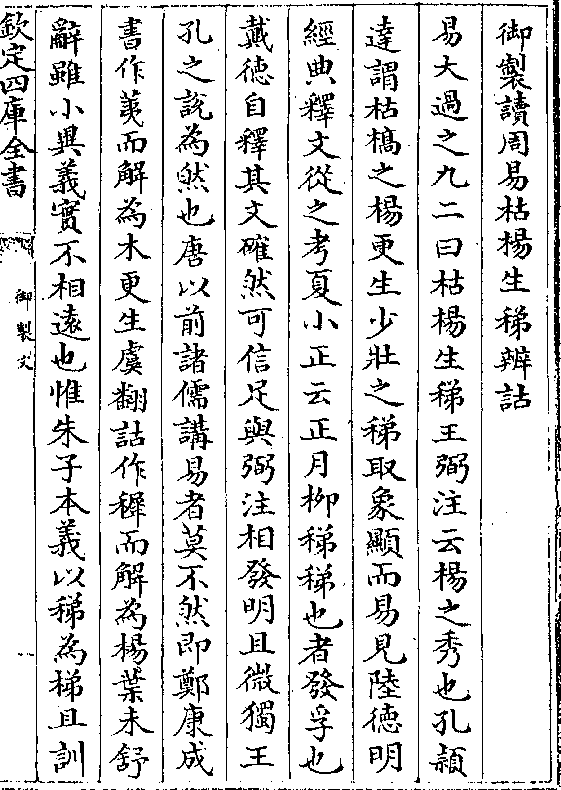 御製讀周易枯楊生稊辨詁
易大過之九二曰枯楊生稊王弼注云楊之秀也孔穎
達謂枯槁之楊更生少壯之稊取象顯而易見陸徳明
經典釋文從之考夏小正云正月柳稊稊也者發孚也
戴徳自釋其文確然可信足與弼注相發明且微獨王
孔之説為然也唐以前諸儒講易者莫不然即鄭康成
書作荑而解為木更生虞翻詁作穉而解為楊葉未舒
辭雖小異義實不相遠也惟朱子本義以稊為梯且訓
欽定四庫全書
御製文